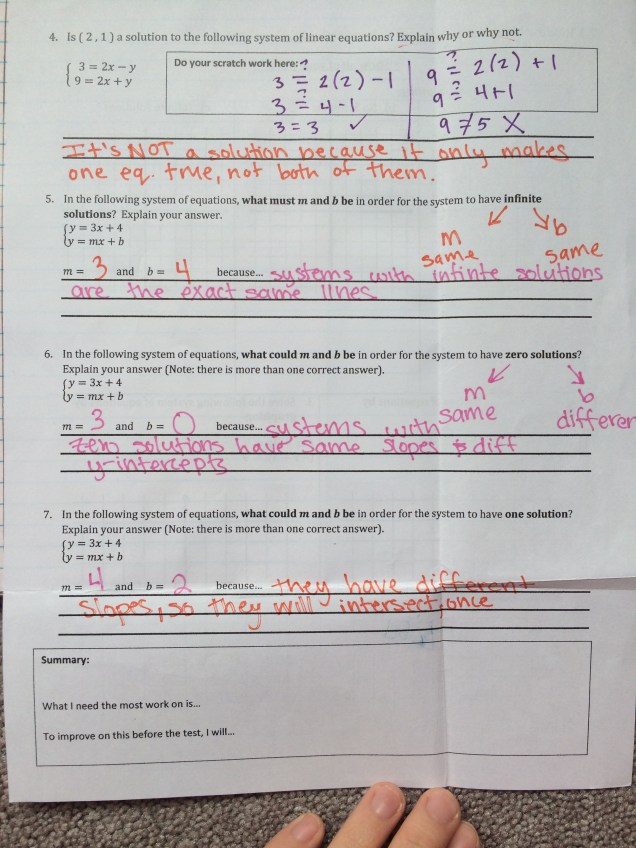 4. Is ( 2 , 1 ) a solution to the following system of linear equations? Explain why or why not.
{ 3 = 2x − y
9 = 2x + y
Do your scratch work here:
3 ≟ 2(2) - 1
3 ≟ 4 - 1
3 = 3 ✓
9 ≟ 2(2) + 1
9 ≟ 4+1
9 ≠ 5 X
It's NOT a solution because it only makes
one eq. true, not both of them.
5. In the following system of equations, what must m and b be in order for the system to have infinite
solutions? Explain your answer.
{ y = 3x + 4
y = mx + b
m same
b same
m = 3 and b = 4 because... systems with infinte solutions
are the exact same lines
6. In the following system of equations, what could m and b be in order for the system to have zero solutions?
Explain your answer (Note: there is more than one correct answer).
{ y = 3x + 4
y = mx + b
m same
b differen
m = 3 and b = 0 because... systems with
zero solutions have same slopes & diff
y-intercepts
7. In the following system of equations, what could m and b be in order for the system to have one solution?
Explain your answer (Note: there is more than one correct answer).
{ y = 3x + 4
y = mx + b
m = 4 and b = 2 because... they have different
slopes, so they will intersect once
Summary:
What I need the most work on is...
To improve on this before the test, I will...